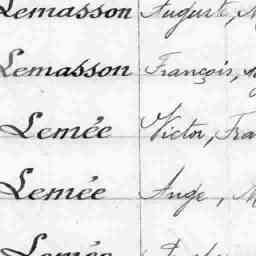 Lemasson Auguste, M
Lemasson François, M
Lemée Victor, Fra
Lemée Ange, M
Lemée